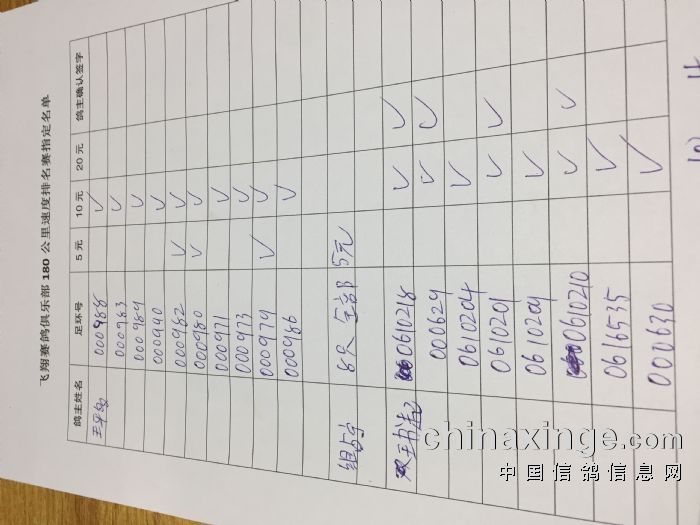 飞翔赛鸽俱乐部 180 公里速度排名赛指定名单
鸽主姓名 足环号 5 元 10 元 20 元 鸽主确认签字
000988 ✓
000983 ✓
000989 ✓
000990 ✓
000982 ✓ ✓
000980 ✓ ✓
000971 ✓
000973 ✓
000979 ✓ ✓
000986 ✓
8只 全部 5元
0610218 ✓ ✓
000629 ✓ ✓
0610204 ✓
0610201 ✓ ✓
0610209 ✓
0610210 ✓ ✓
0616535 ✓
000630 ✓
chinaxinge.com
中国信鸽信息网